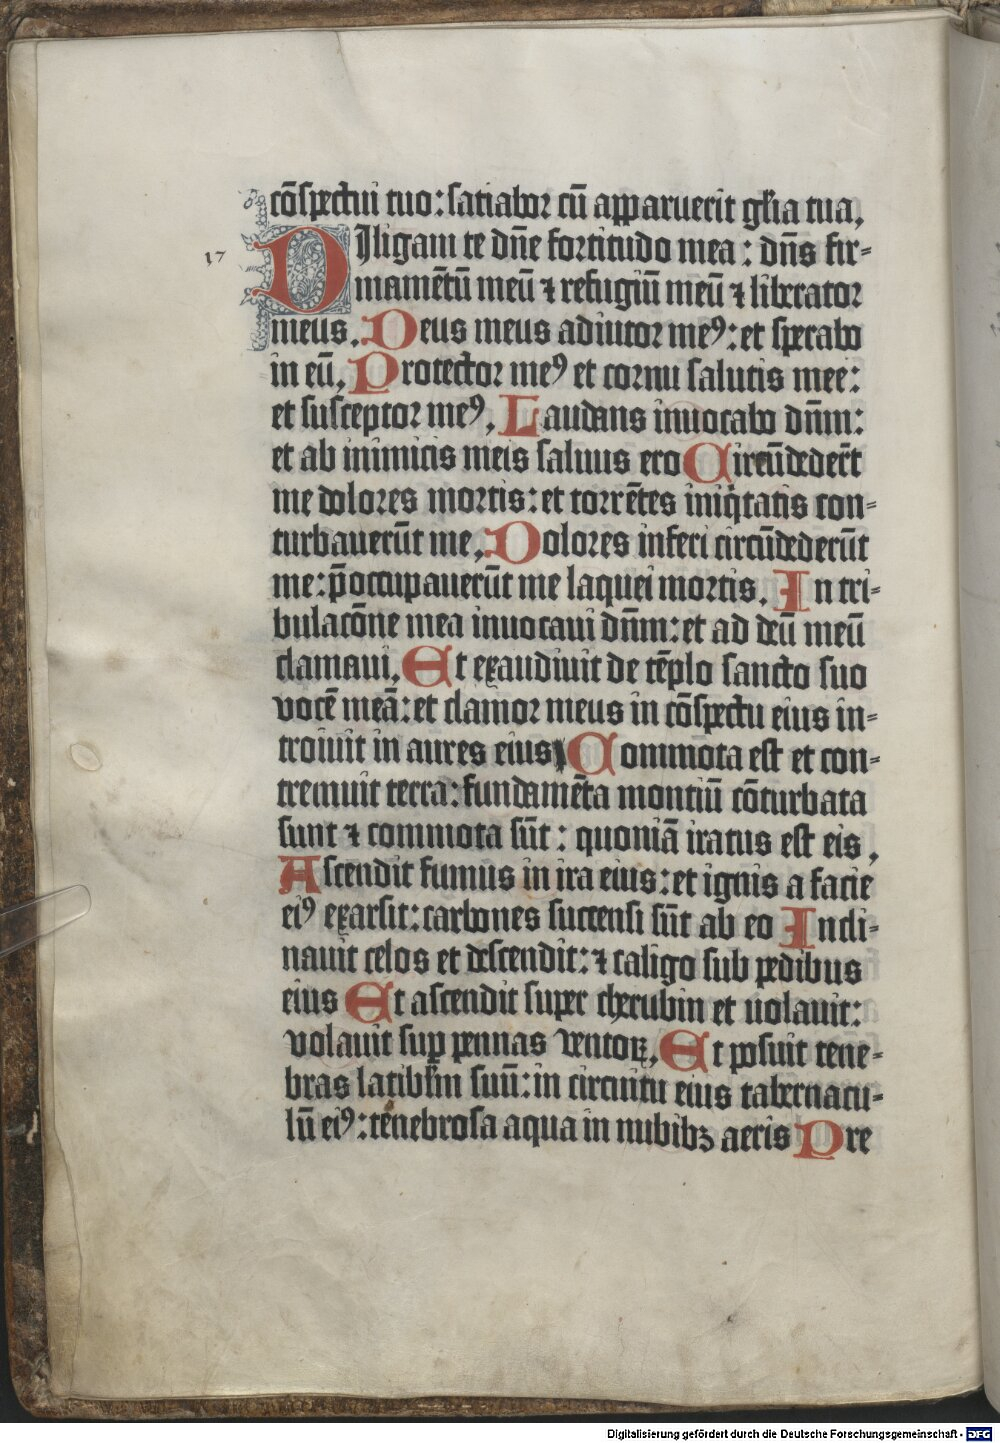 cōspectui tuo: satiabor cū apparuerit gl̄ia tua,
17
DIligam te dn̄e fortitudo mea: dn̄s fir-
mamētū meū ⁊ refugiū meū ⁊ liberator
meus. Deus meus adiutor meꝰ: et sperabo
in eū, Protector meꝰ et cornu salutis mee:
et susceptor meꝰ, Laudans inuocabo dn̄m:
et ab inimicis meis saluus ero Circūdeder̄t
me dolores mortis: et torrētes iniq̇tatis con-
turbauerūt me, Dolores inferi circūdederūt
me: p̄occupauerūt me laquei mortis. In tri-
bulacōne mea inuocaui dn̄m: et ad deū meū
clamaui, Et exaudiuit de tēplo sancto suo
vocē meā: et clamor meus in cōspectu eius in-
troiuit in aures eius Commota est et con-
tremuit terra: fundamēta montiū cōturbata
sunt ⁊ commota sūt: quoniā iratus est eis,
Ascendit fumus in ira eius: et ignis a facie
eiꝰ exarsit: carbones succensi sūt ab eo Incli-
nauit celos et descendit: ⁊ caligo sub pedibus
eius Et ascendit super cherubin et uolauit:
volauit suꝑ pennas ventoꝝ, Et posuit tene-
bras latibl̄m suū: in circuitu eius tabernacu-
lū eiꝰ: tenebrosa aqua in nubibꝫ aeris Pre
Digitalisierung gefördert durch die Deutsche Forschungsgemeinschaft - DFG